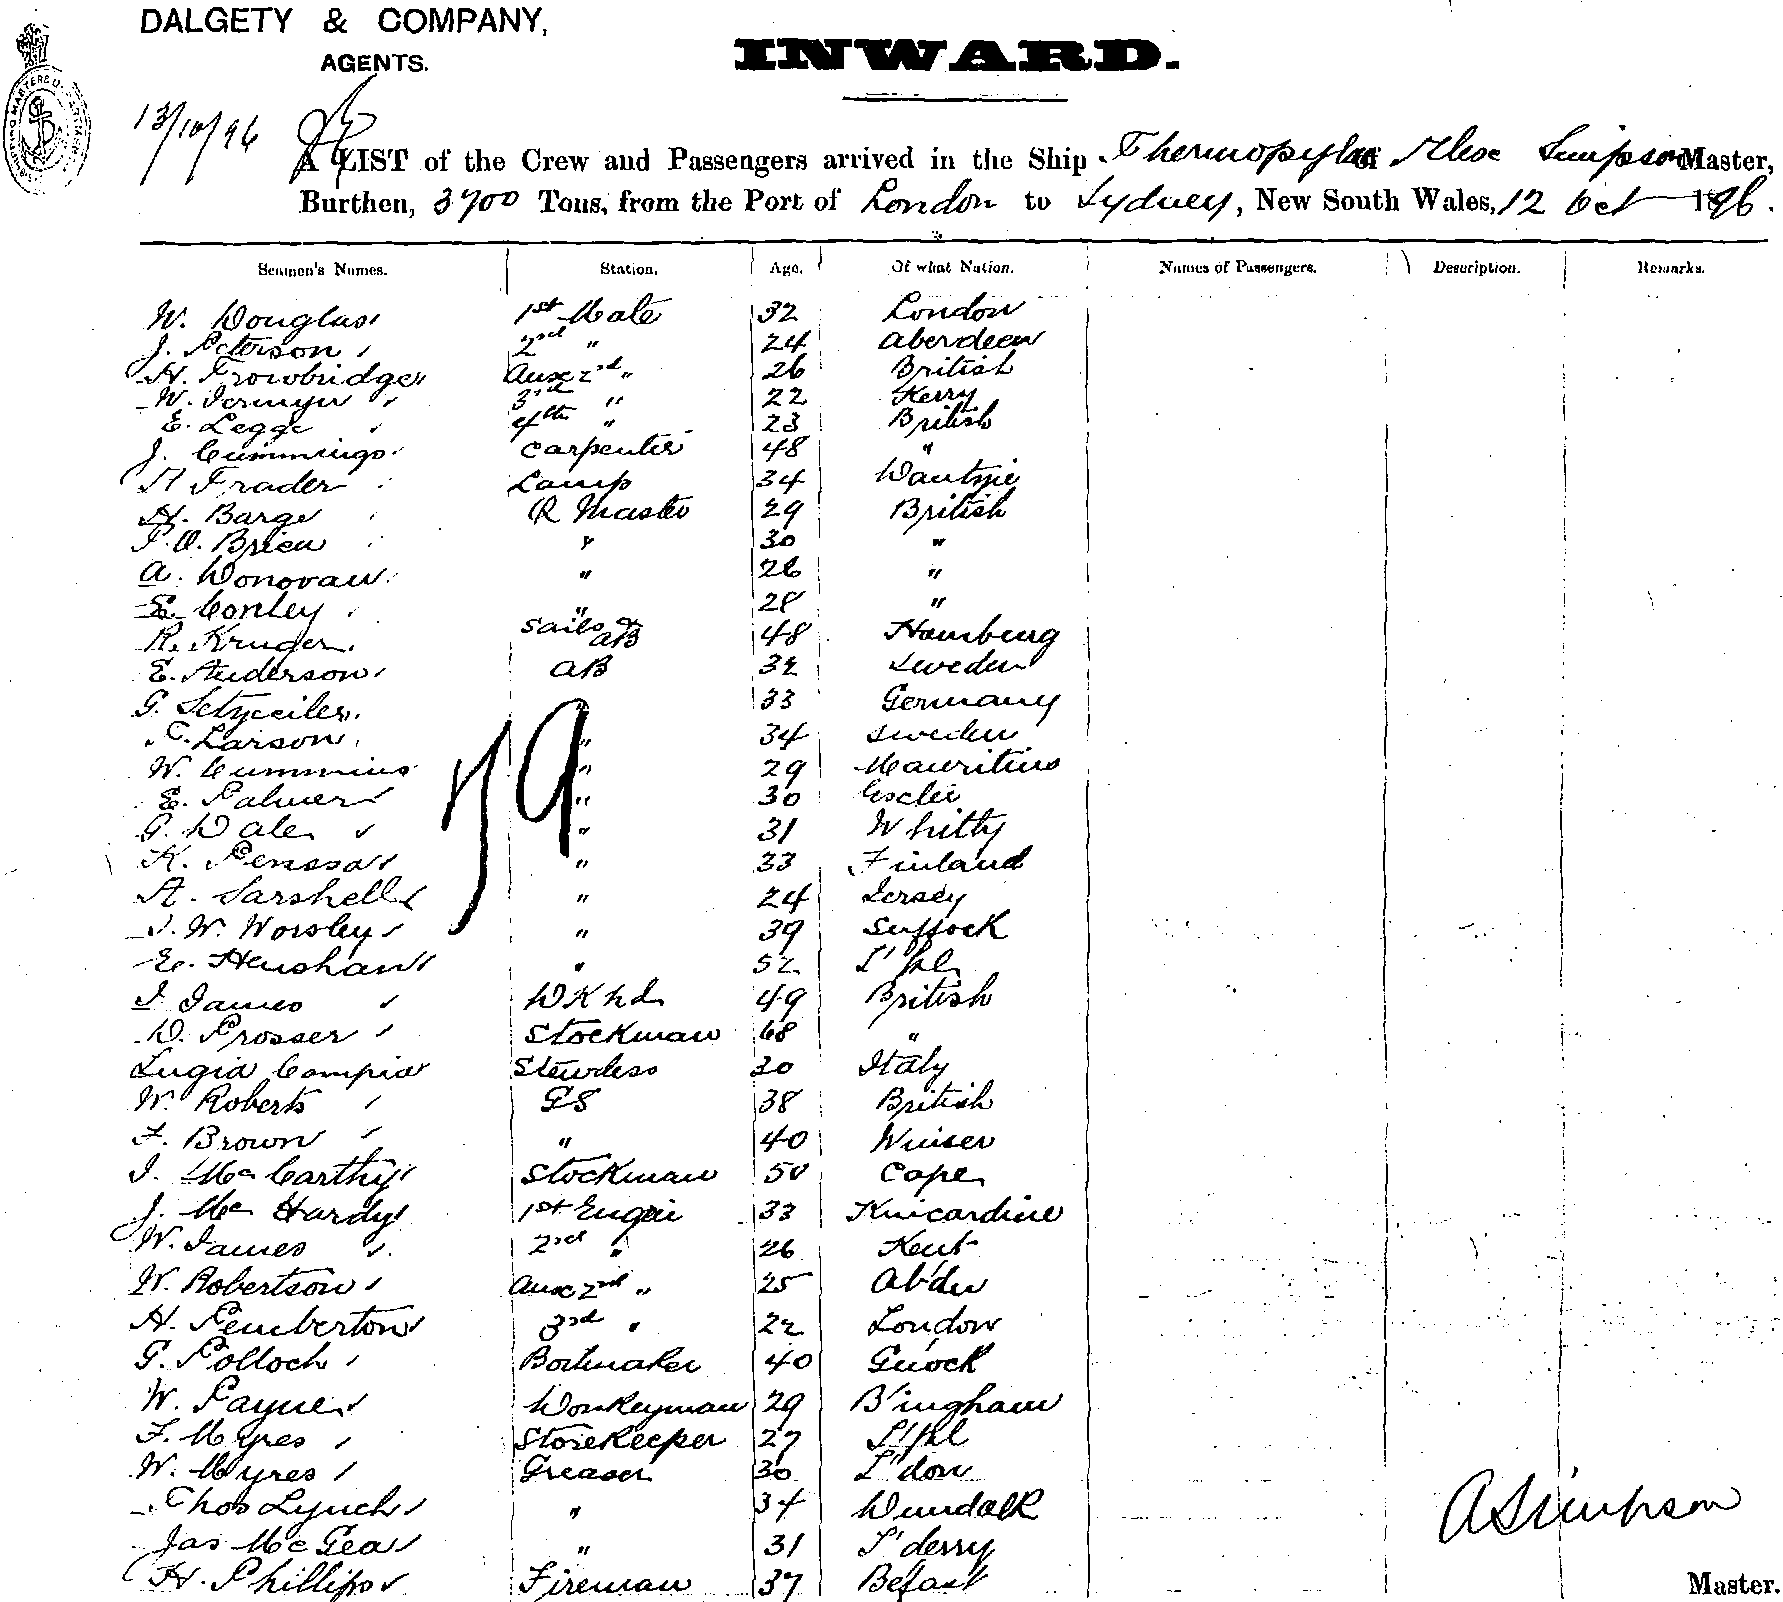 DALGETY & COMPANY,
AGENTS.
INWARD.
13/10/96
A LIST of the Crew and Passengers arrived in the Ship Thermopylae of Alex Simpson Master,
Burthen, 3700 Tons, from the Port of London to Sydney, New South Wales, 12 Oct 1896.
Seamen's Names. Station. Age. Of what Nation. Names of Passengers. Description. Remarks.
W. Douglas 1st Mate 32 London
J. Peterson 2nd " 24 Aberdeen
H. Trowbridge Aux 2nd " 26 British
W. Jermyn 3rd " 22 Kerry
E. Legge 4th " 23 British
J. Cummings Carpenter 48 "
Frader Lamp 34
H. Barge Q Master 29 British
O. Brien " 30 "
A. Donovan " 26 "
E. Conley " 28 "
R. Kruger Sails & AB 48 Hamburg
E. Anderson AB 32 Sweden
G. 33 Germany
Larson " 34 Sweden
W. Cummins " 29 Mauritius
E. Palmer " 30
G. Dale " 31 Whitby
K. " 33 Finland
A. Sarshell " 24 Jersey
J. W. Worsley " 39 Suffock
E. Henshaw " 52 L'pl
J James Dk hd 49 British
D. Prosser Stockman 68 "
Lugia Campia Stewdess 30 Italy
W. Roberts GS 38 British
F. Brown " 40
J. McCarthy Stockman 50 Cape
J. McHardy 1st Engin 33 Kincardine
W. James 2nd " 26 Kent
W. Robertson Aux 2nd " 25 Ab'dn
H. Pemberton 3rd " 22 London
G. Polloch Boilmaker 40 G'nock
W. Payne Donkeyman 29 B'ingham
F. Myres Storekeeper 27 L'pl
W. Myres Greaser 30 L'don
Thos Lynch " 34 Dundalk
Jas McGea " 31 L'derry
H. Phillips Fireman 37 Befast
79
A Simpson
Master.